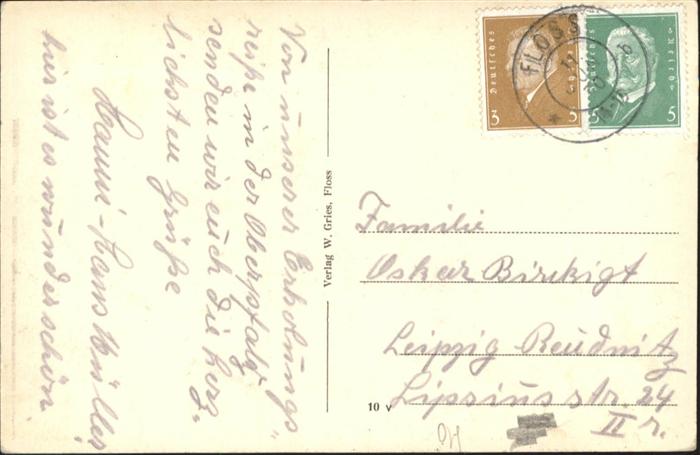 Von unserer Erholungs„
reise in der Oberpfalz
senden wir euch die herz„
lichsten Grüße
Hanni - Hans Müller
hier ist es wunderschön.
Verlag W. Gries, Floss
Deutsches Reich
3 3
Deutsches Reich
5 5
FLOSS
Familie
Oskar Birkigt
Leipzig Reudnitz
Lipsiusstr. 24
II r.
10 v